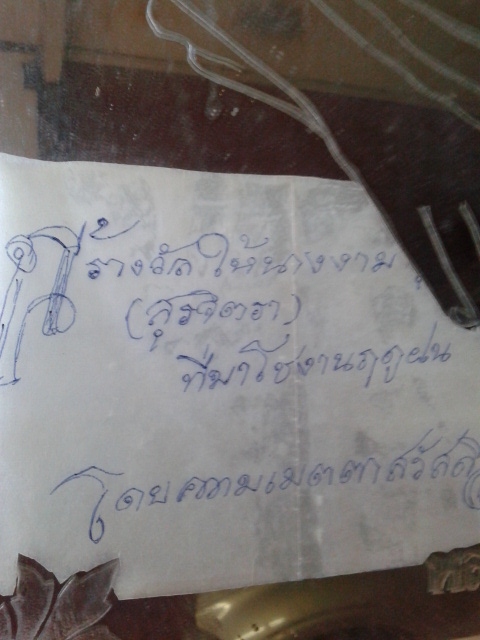 รางวัลให้นางงาม
(สุรจิตรา)
ที่มาโชงานฤดูฝน
โดยความเมตตาสวัสดิ